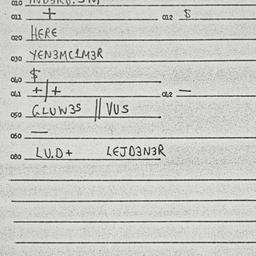 011 + 012 $
020 HERE
030 YEN3MC1M3R
040 $
041 +/+ 042 —
050 GLUW3S || VUS
060 —
080 LU.D+ LEJD3N3R